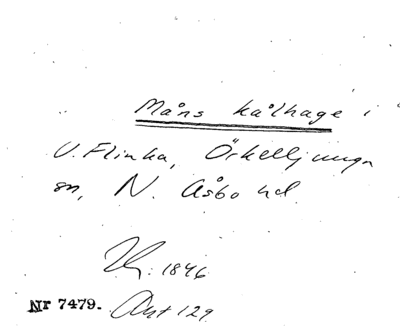 Måns kålhage i
V. Flinka, Örkelljunga
sn, N. Åsbo hd.
1846
Nr 7479. Akt 129